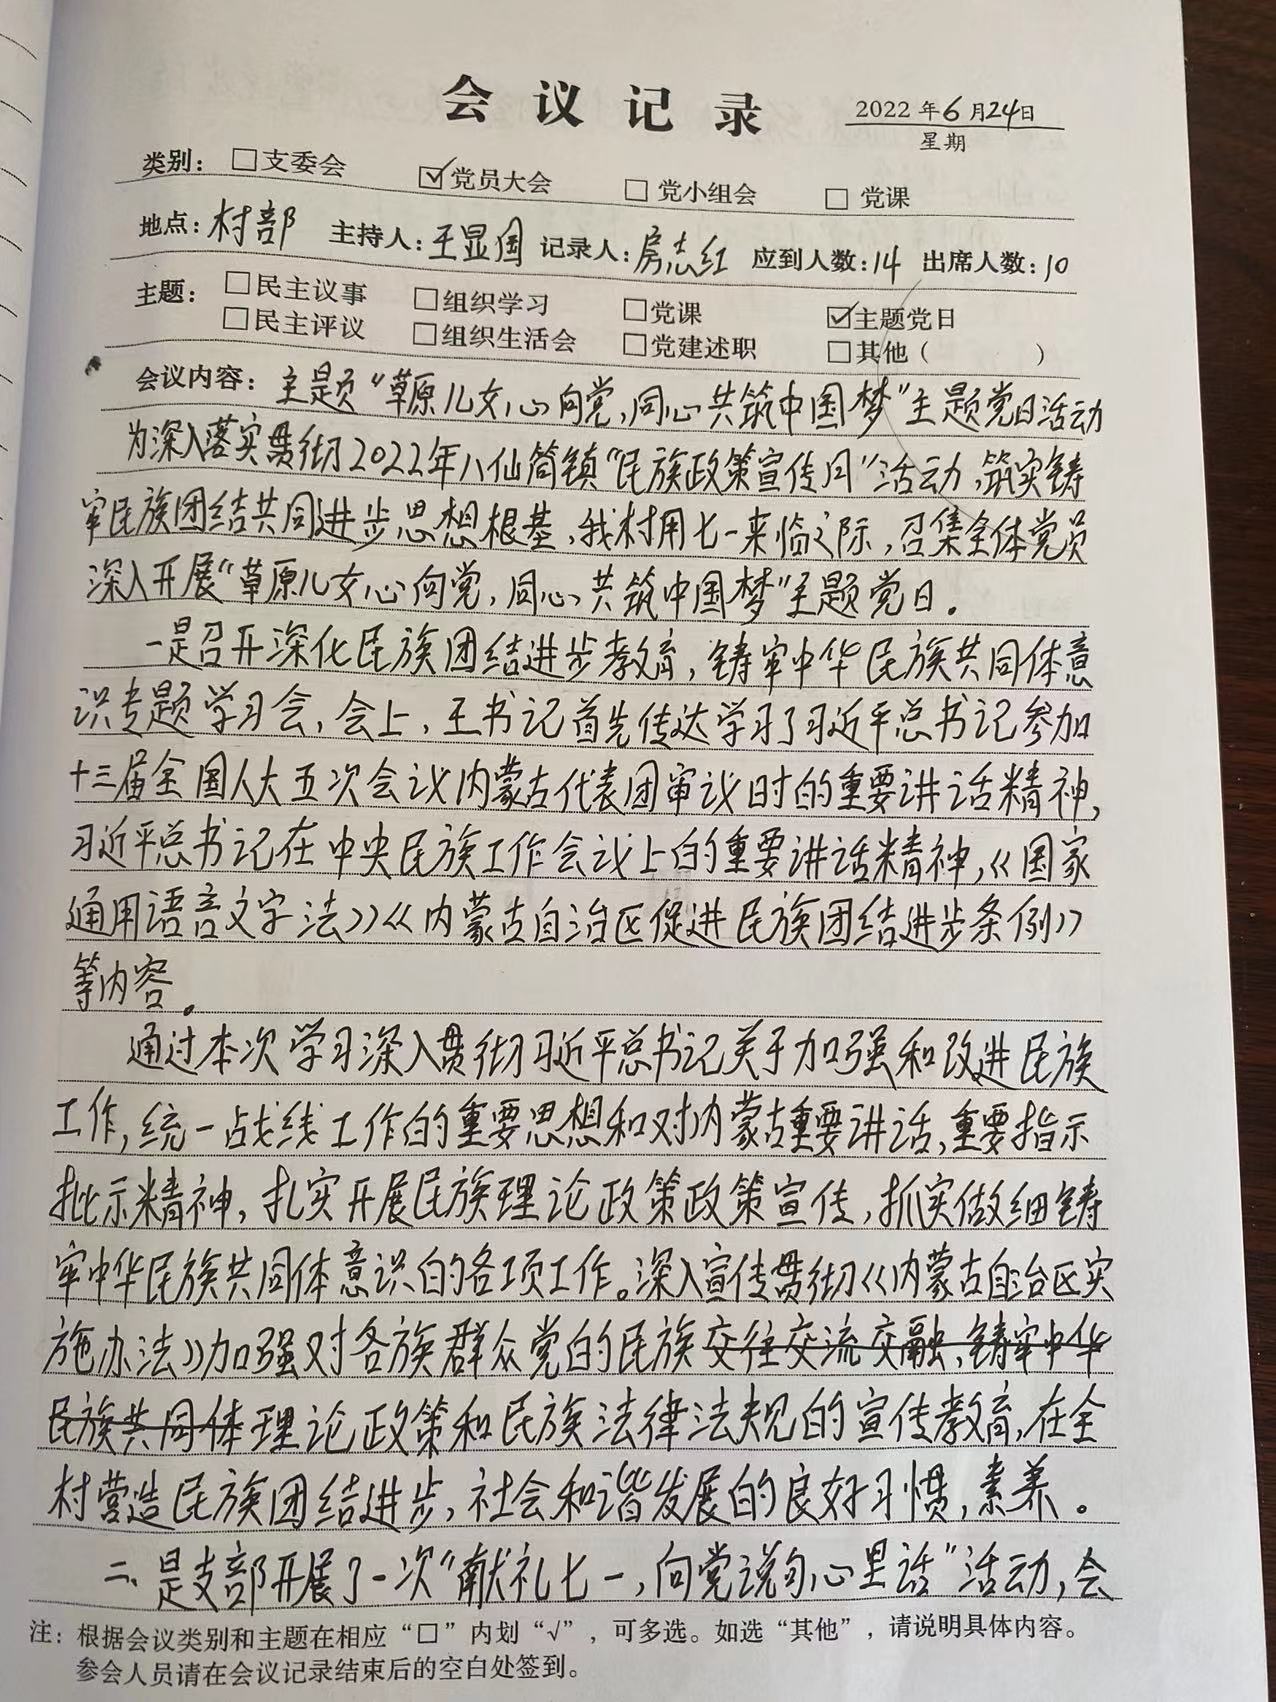 会议记录
2022年6月24日
星期
类别：□支委会 ☑党员大会 □党小组会 □党课
地点：村部 主持人：王显国 记录人：房志红 应到人数：14 出席人数：10
主题：□民主议事 □组织学习 □党课 ☑主题党日
□民主评议 □组织生活会 □党建述职 □其他（ ）
会议内容：主题“草原儿女心向党，同心共筑中国梦”主题党日活动
为深入落实贯彻2022年八仙筒镇“民族政策宣传月”活动，筑实铸
牢民族团结共同进步思想根基，我村用七一来临之际，召集全体党员
深入开展“草原儿女心向党，同心共筑中国梦”主题党日。
一是召开深化民族团结进步教育，铸牢中华民族共同体意
识专题学习会，会上，王书记首先传达学习了习近平总书记参加
十三届全国人大五次会议内蒙古代表团审议时的重要讲话精神，
习近平总书记在中央民族工作会议上的重要讲话精神，《国家
通用语言文字法》《内蒙古自治区促进民族团结进步条例》
等内容。
通过本次学习深入贯彻习近平总书记关于加强和改进民族
工作，统一战线工作的重要思想和对内蒙古重要讲话，重要指示
批示精神，扎实开展民族理论政策政策宣传，抓实做细铸
牢中华民族共同体意识的各项工作。深入宣传贯彻《内蒙古自治区实
施办法》加强对各族群众党的民族交往交流交融，铸牢中华
民族共同体理论政策和民族法律法规的宣传教育，在全
村营造民族团结进步，社会和谐发展的良好习惯，素养。
二、是支部开展了一次“献礼七一，向党说句心里话”活动，会
注：根据会议类别和主题在相应“□”内划“√”，可多选。如选“其他”，请说明具体内容。
参会人员请在会议记录结束后的空白处签到。